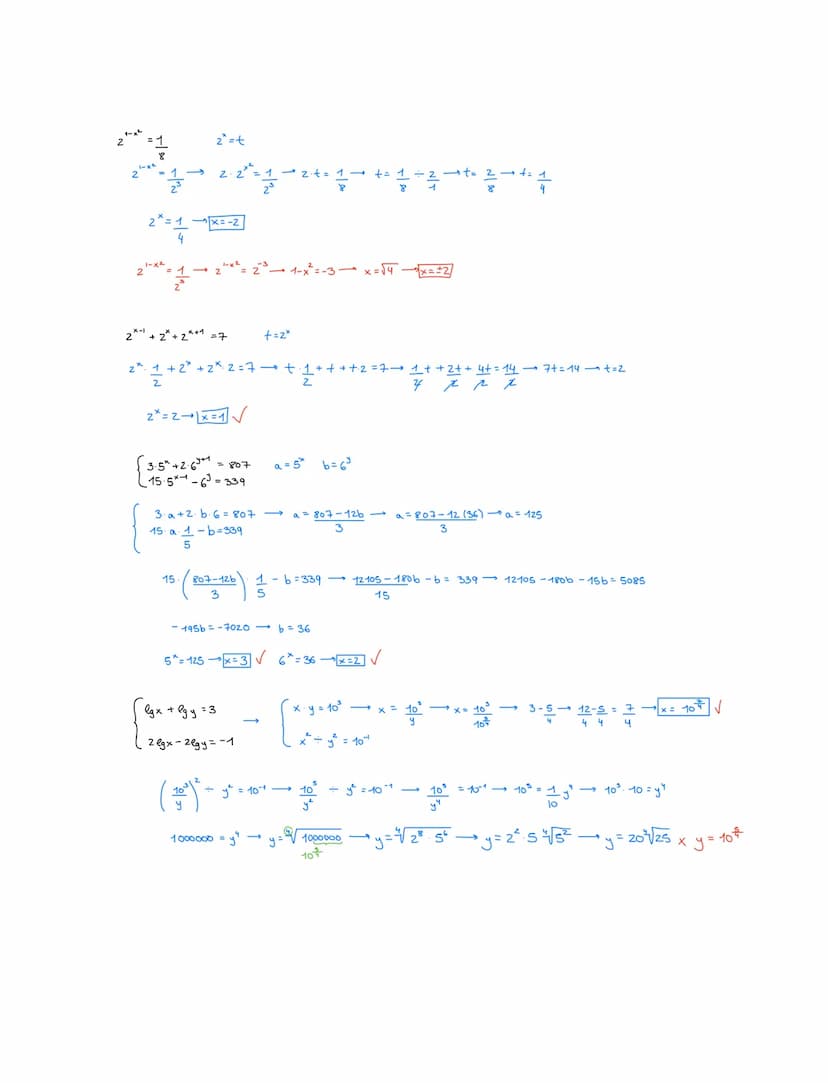 2^(1-x²) = 1/8    2^x = t
2^(1-x²) = 1/2³ → 2·2^(x²) = 1/2³ → 2·t = 1/8 → t = 1/8 ÷ 2/1 → t = 2/8 → t = 1/4
2^x = 1/4 → x = -2
2^(1-x²) = 1/2³ → 2^(1-x²) = 2^(-3) → 1-x² = -3 → x = √4 → x = ±2
2^(x-1) + 2^x + 2^(x+1) = 7    t = 2^x
2^x · 1/2 + 2^x + 2^x · 2 = 7 → t · 1/2 + t + t2 = 7 → 1t/2 + 2t/2 + 4t/2 = 14/2 → 7t = 14 → t = 2
2^x = 2 → x = 1 ✓
3·5^x + 2·6^(y+1) = 807    a = 5^x    b = 6^y
15·5^(x-1) - 6^y = 339
3·a + 2·b·6 = 807 → a = (807-12b)/3 → a = (807-12(36))/3 → a = 125
15·a·1/5 - b = 339
15·((807-12b)/3)·1/5 - b = 339 → (12105-180b)/15 - b = 339 → 12105-180b-15b = 5085
-195b = -7020 → b = 36
5^x = 125 → x = 3 ✓ 6^x = 36 → x = 2 ✓
lgx + lgy = 3 → x·y = 10³ → x = 10³/y → x = 10³/10^(5/4) → 3 - 5/4 → 12/4 - 5/4 = 7/4 → x = 10^(7/4) ✓
2lgx - 2lgy = -1    x² ÷ y² = 10^(-1)
(10³/y)² ÷ y² = 10^(-1) → 10⁵/y² ÷ y² = 10^(-1) → 10⁵/y⁴ = 10^(-1) → 10⁵ = 1/10 y⁴ → 10⁵·10 = y⁴
1000000 = y⁴ → y = ⁴√1000000 → y = ⁴√(2⁸·5⁶) → y = 2²·5 ⁴√5² → y = 20⁴√25 x y = 10^(5/4)